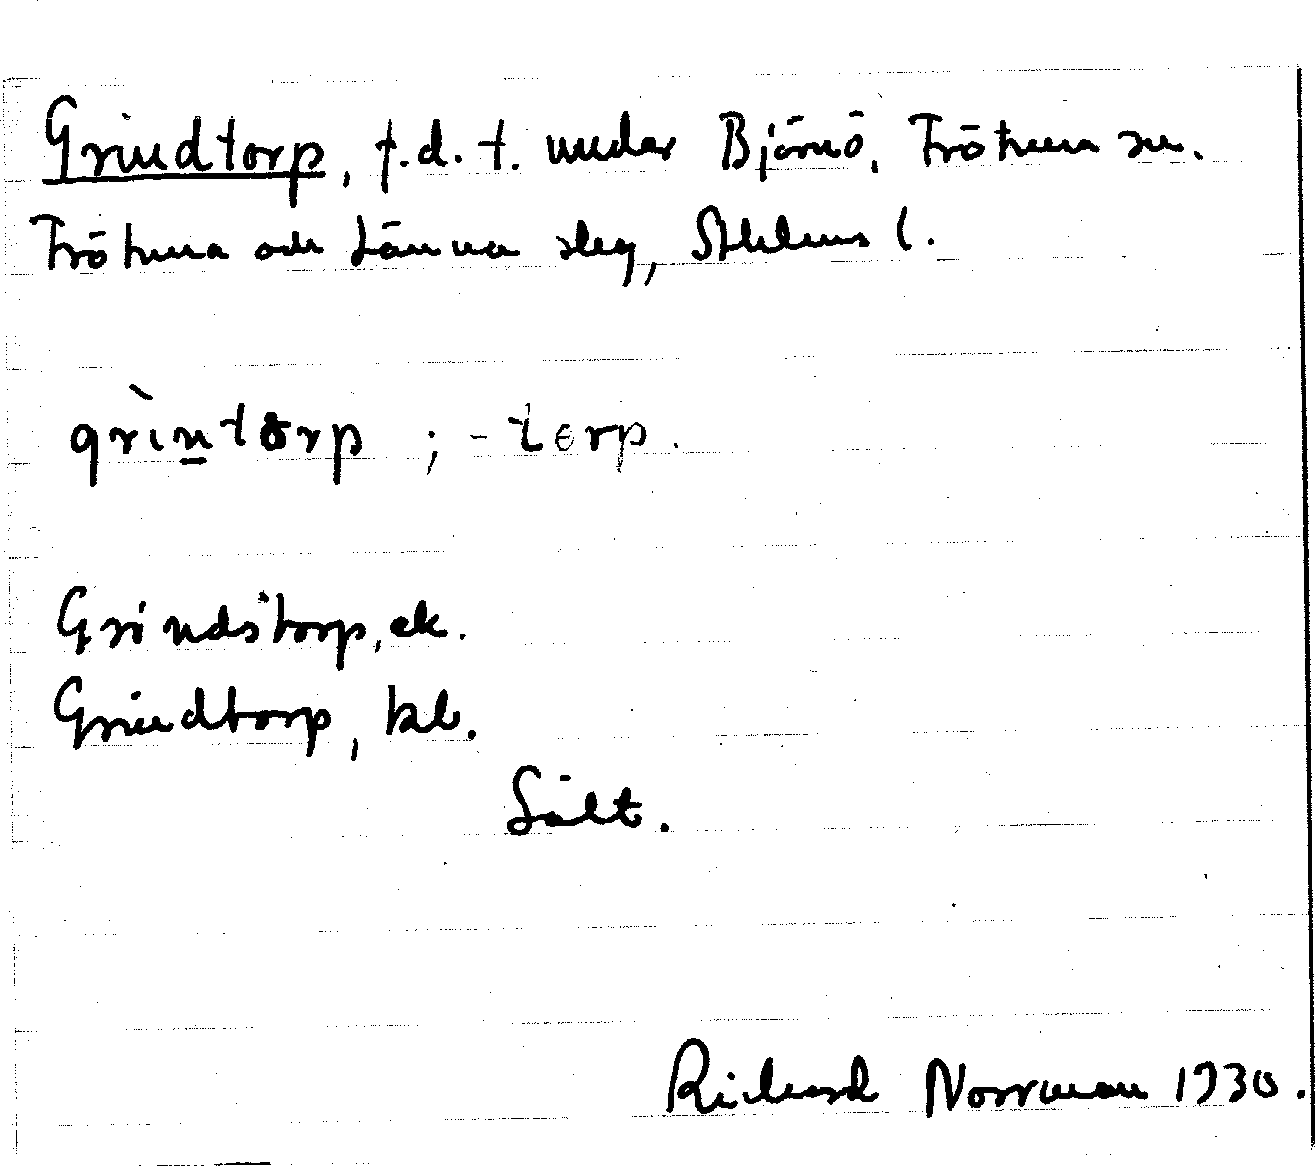 Grindtorp, f.d. t. under Björnö, Frötuna sn.
Frötuna och Länna slag, Sthlms l.
grìntorp ; -torp.
Grindstorp, ek.
Grindtorp, kb.
Sält.
Rickard Norrman 1930.